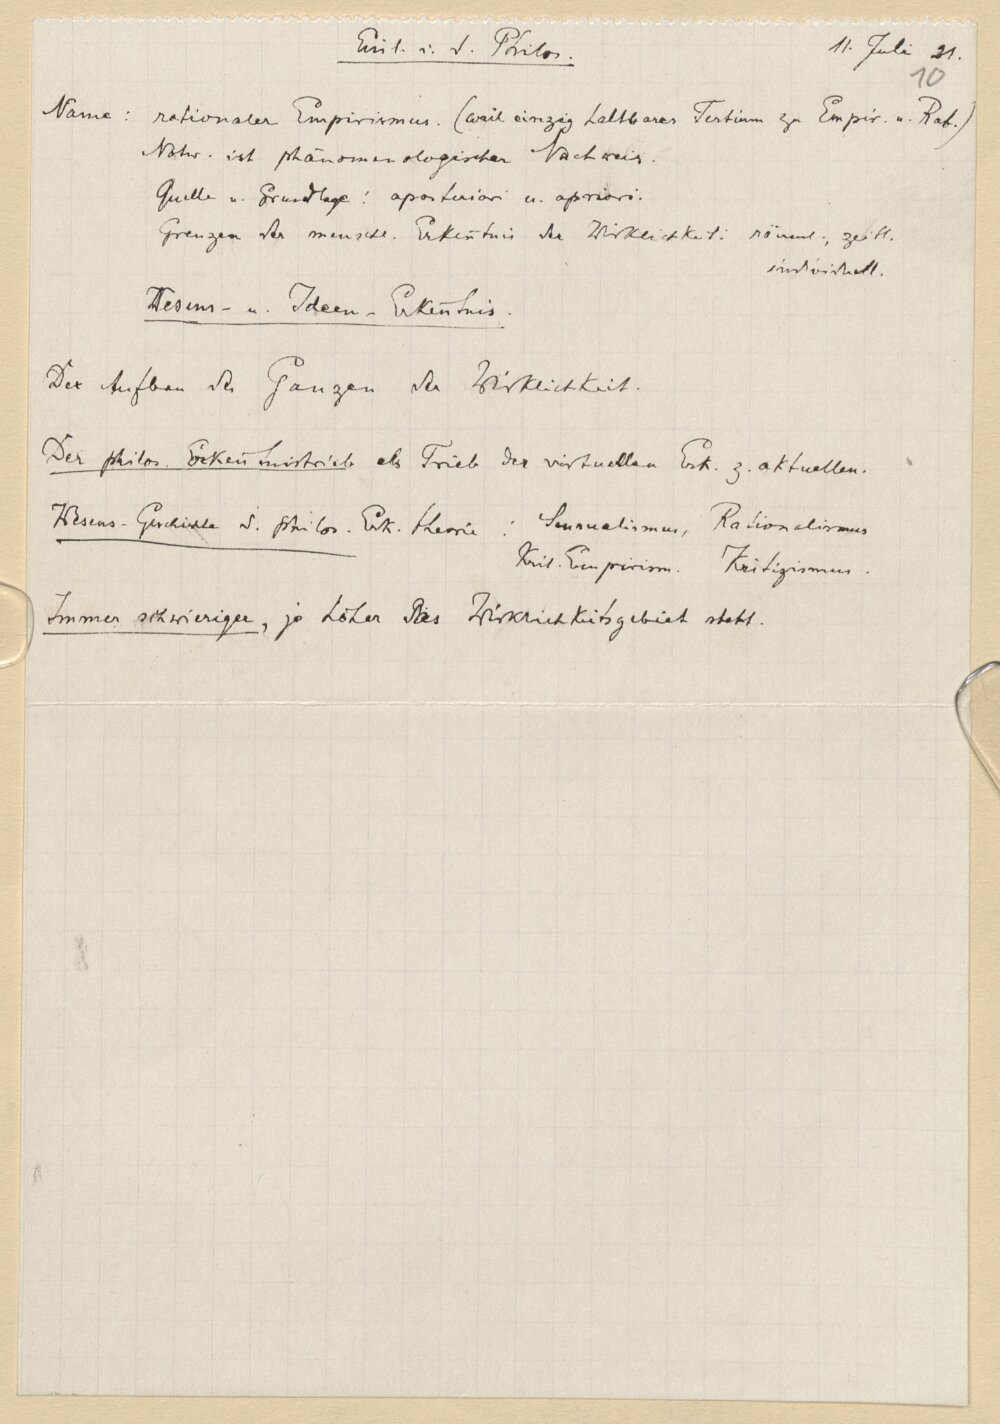 Einl. i. d. Philos. 11. Juli 21.
10
Name: rationaler Empirismus. (weil einzig haltbares Tertium zu Empir. u. Rat.)
Notw. ist phänomenologischer Nachweis.
Quelle u. Grundlage: aposteriori u. apriori.
Grenzen der menschl. Erkenntnis der Wirklichkeit: räuml., zeitl.
individuell.
Wesens- u. Ideen-Erkenntnis.
Der Aufbau des Ganzen der Wirklichkeit.
Der philos. Erkenntnistrieb als Trieb der virtuellen Erk. z. aktuellen.
Wesens-Geschichte d. philos. Erk. theorie: Sensualismus, Rationalismus
Krit. Empirism. Kritizismus.
Immer schwieriger, je höher das Wirklichkeitsgebiet steht.